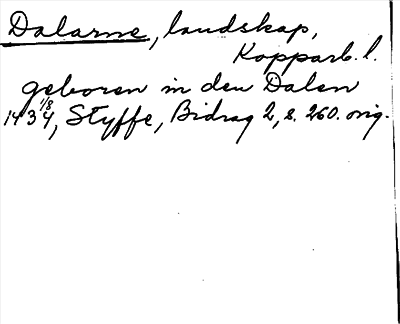 Dalarne, landskap,
Kopparb. l.
geboren in den Dalen
14 1/8 34, Styffe, Bidrag 2, s. 260. orig.